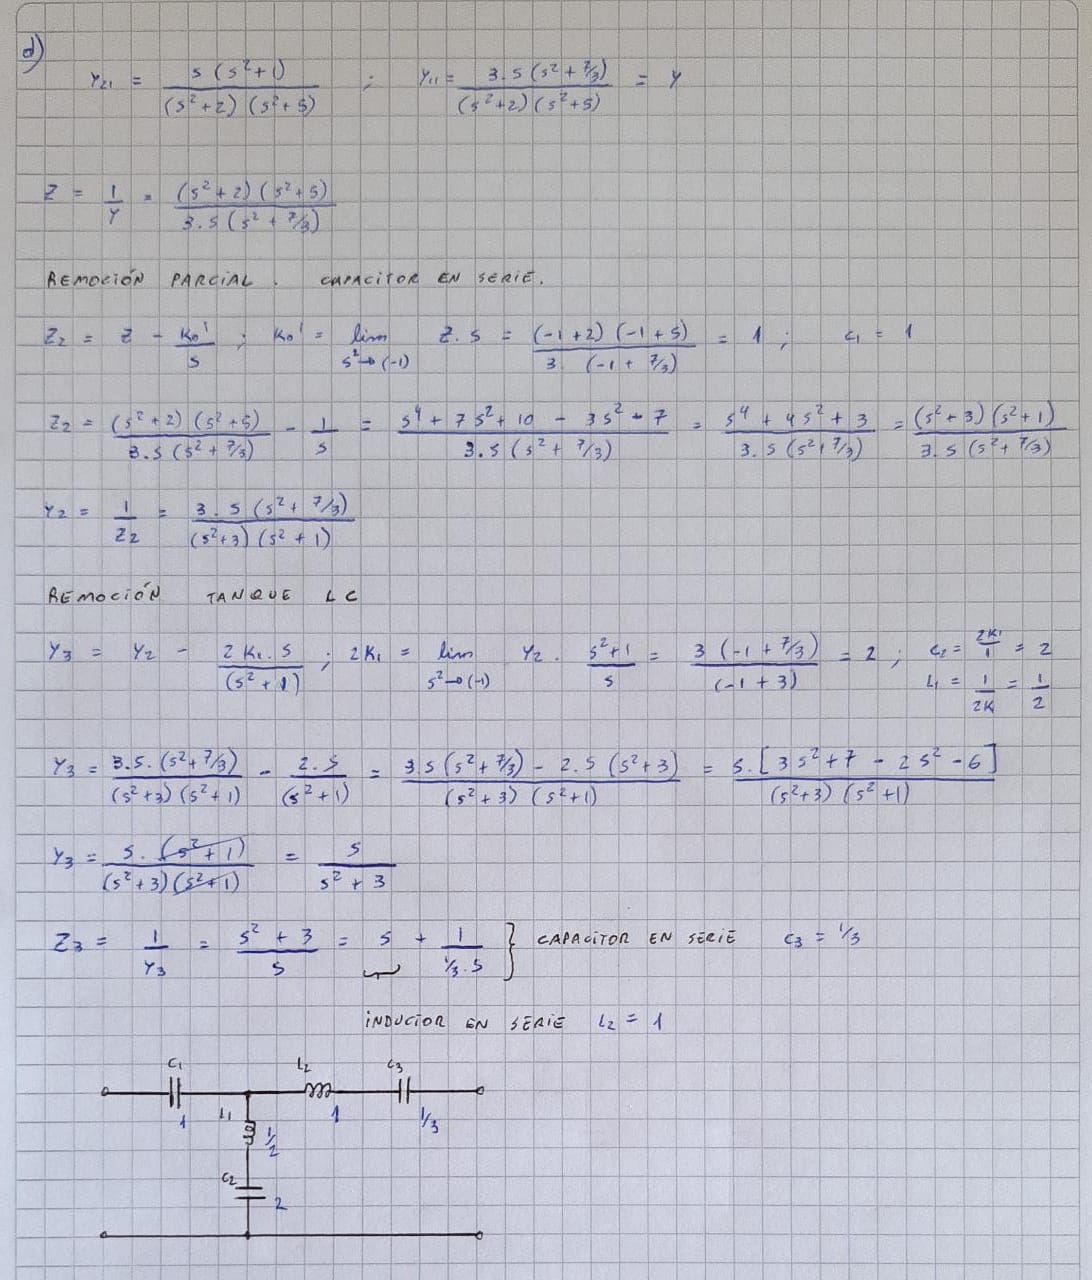 d)
Y₂₁ = s (s²+1) / (s²+2) (s²+5) ; Y₁₁ = 3.s (s² + 7/3) / (s²+2) (s²+5) = Y
Z = 1/Y = (s²+2) (s²+5) / 3.s (s² + 7/3)
REMOCIÓN PARCIAL . CAPACITOR EN SERIE.
Z₂ = Z - K₀'/s ; K₀' = lim s²→(-1) Z.s = (-1+2) (-1+5) / 3. (-1 + 7/3) = 1 ; C₁ = 1
Z₂ = (s²+2) (s²+5) / 3.s (s² + 7/3) - 1/s = s⁴ + 7s² + 10 - 3s² - 7 / 3.s (s² + 7/3) = s⁴ + 4s² + 3 / 3.s (s² + 7/3) = (s²+3) (s²+1) / 3.s (s² + 7/3)
Y₂ = 1/Z₂ = 3.s (s² + 7/3) / (s²+3) (s² + 1)
REMOCIÓN TANQUE LC
Y₃ = Y₂ - 2K₁.s / (s² + 1) ; 2K₁ = lim s²→(-1) Y₂ . s²+1 / s = 3 (-1 + 7/3) / (-1 + 3) = 2 ; C₂ = 2K₁/1 = 2
L₁ = 1/2K = 1/2
Y₃ = 3.s. (s² + 7/3) / (s²+3) (s²+1) - 2.s / (s²+1) = 3s (s² + 7/3) - 2.s (s²+3) / (s²+3) (s²+1) = s. [3s² + 7 - 2s² - 6] / (s²+3) (s²+1)
Y₃ = s. (s²+1) / (s²+3) (s²+1) = s / s² + 3
Z₃ = 1/Y₃ = s² + 3 / s = s + 1 / 1/3 . s } CAPACITOR EN SERIE C₃ = 1/3
INDUCTOR EN SERIE L₂ = 1
C₁ L₂ C₃
1 L₁ 1 1/3
1/2
C₂
2